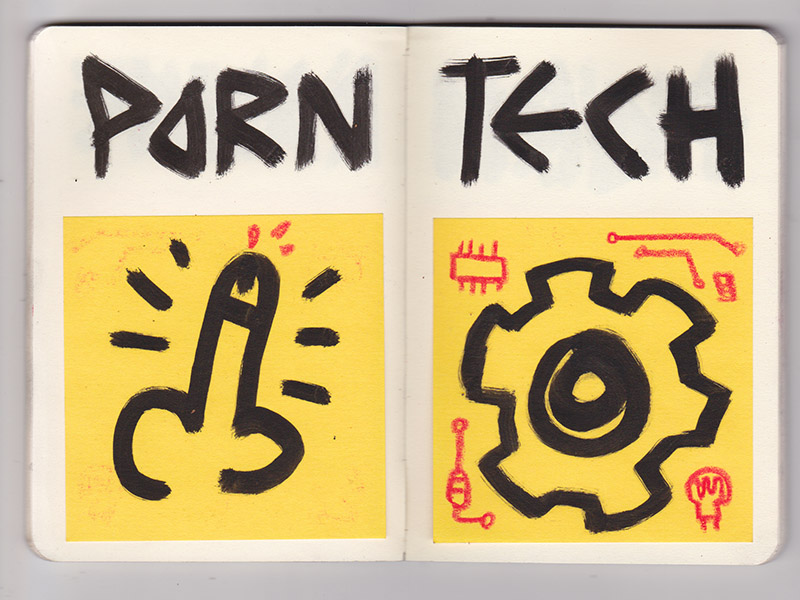 PORN
TECH